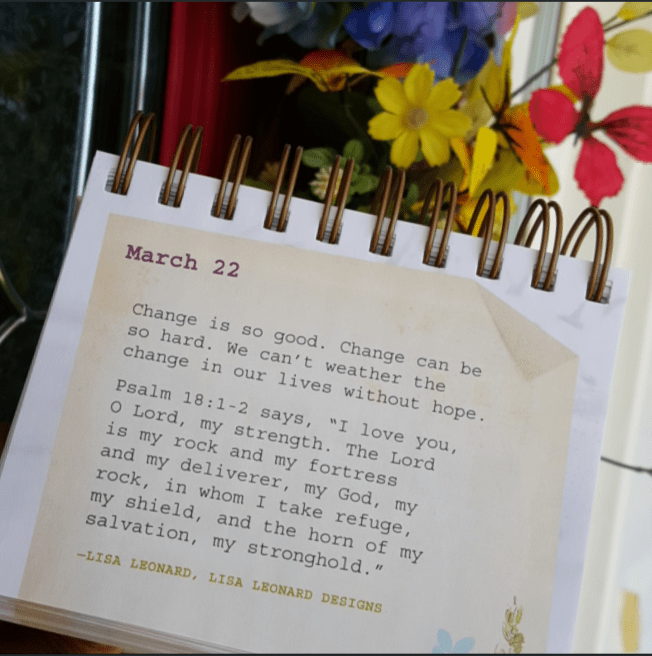 March 22
Change is so good. Change can be
so hard. We can't weather the
change in our lives without hope.
Psalm 18:1-2 says, “I love you,
O Lord, my strength. The Lord
is my rock and my fortress
and my deliverer, my God, my
rock, in whom I take refuge,
my shield, and the horn of my
salvation, my stronghold.”
—LISA LEONARD, LISA LEONARD DESIGNS